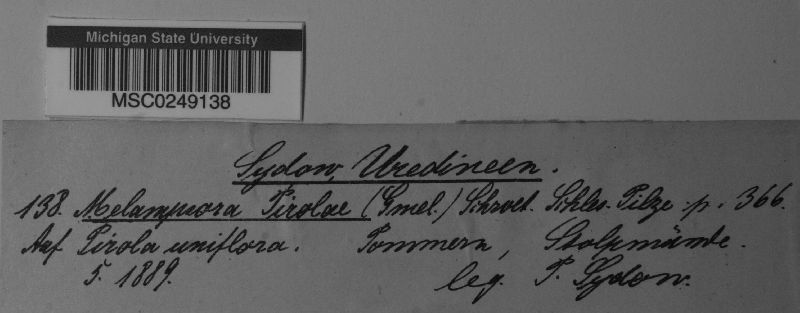 Michigan State University
MSC0249138
Sydow, Uredineen.
138. Melampsora Pirolae (Gmel.) Schroet. Schles. Pilze. p. 366.
Auf Pirola uniflora. Pommern, Stolpmünde.
5. 1889. leg. P. Sydow.